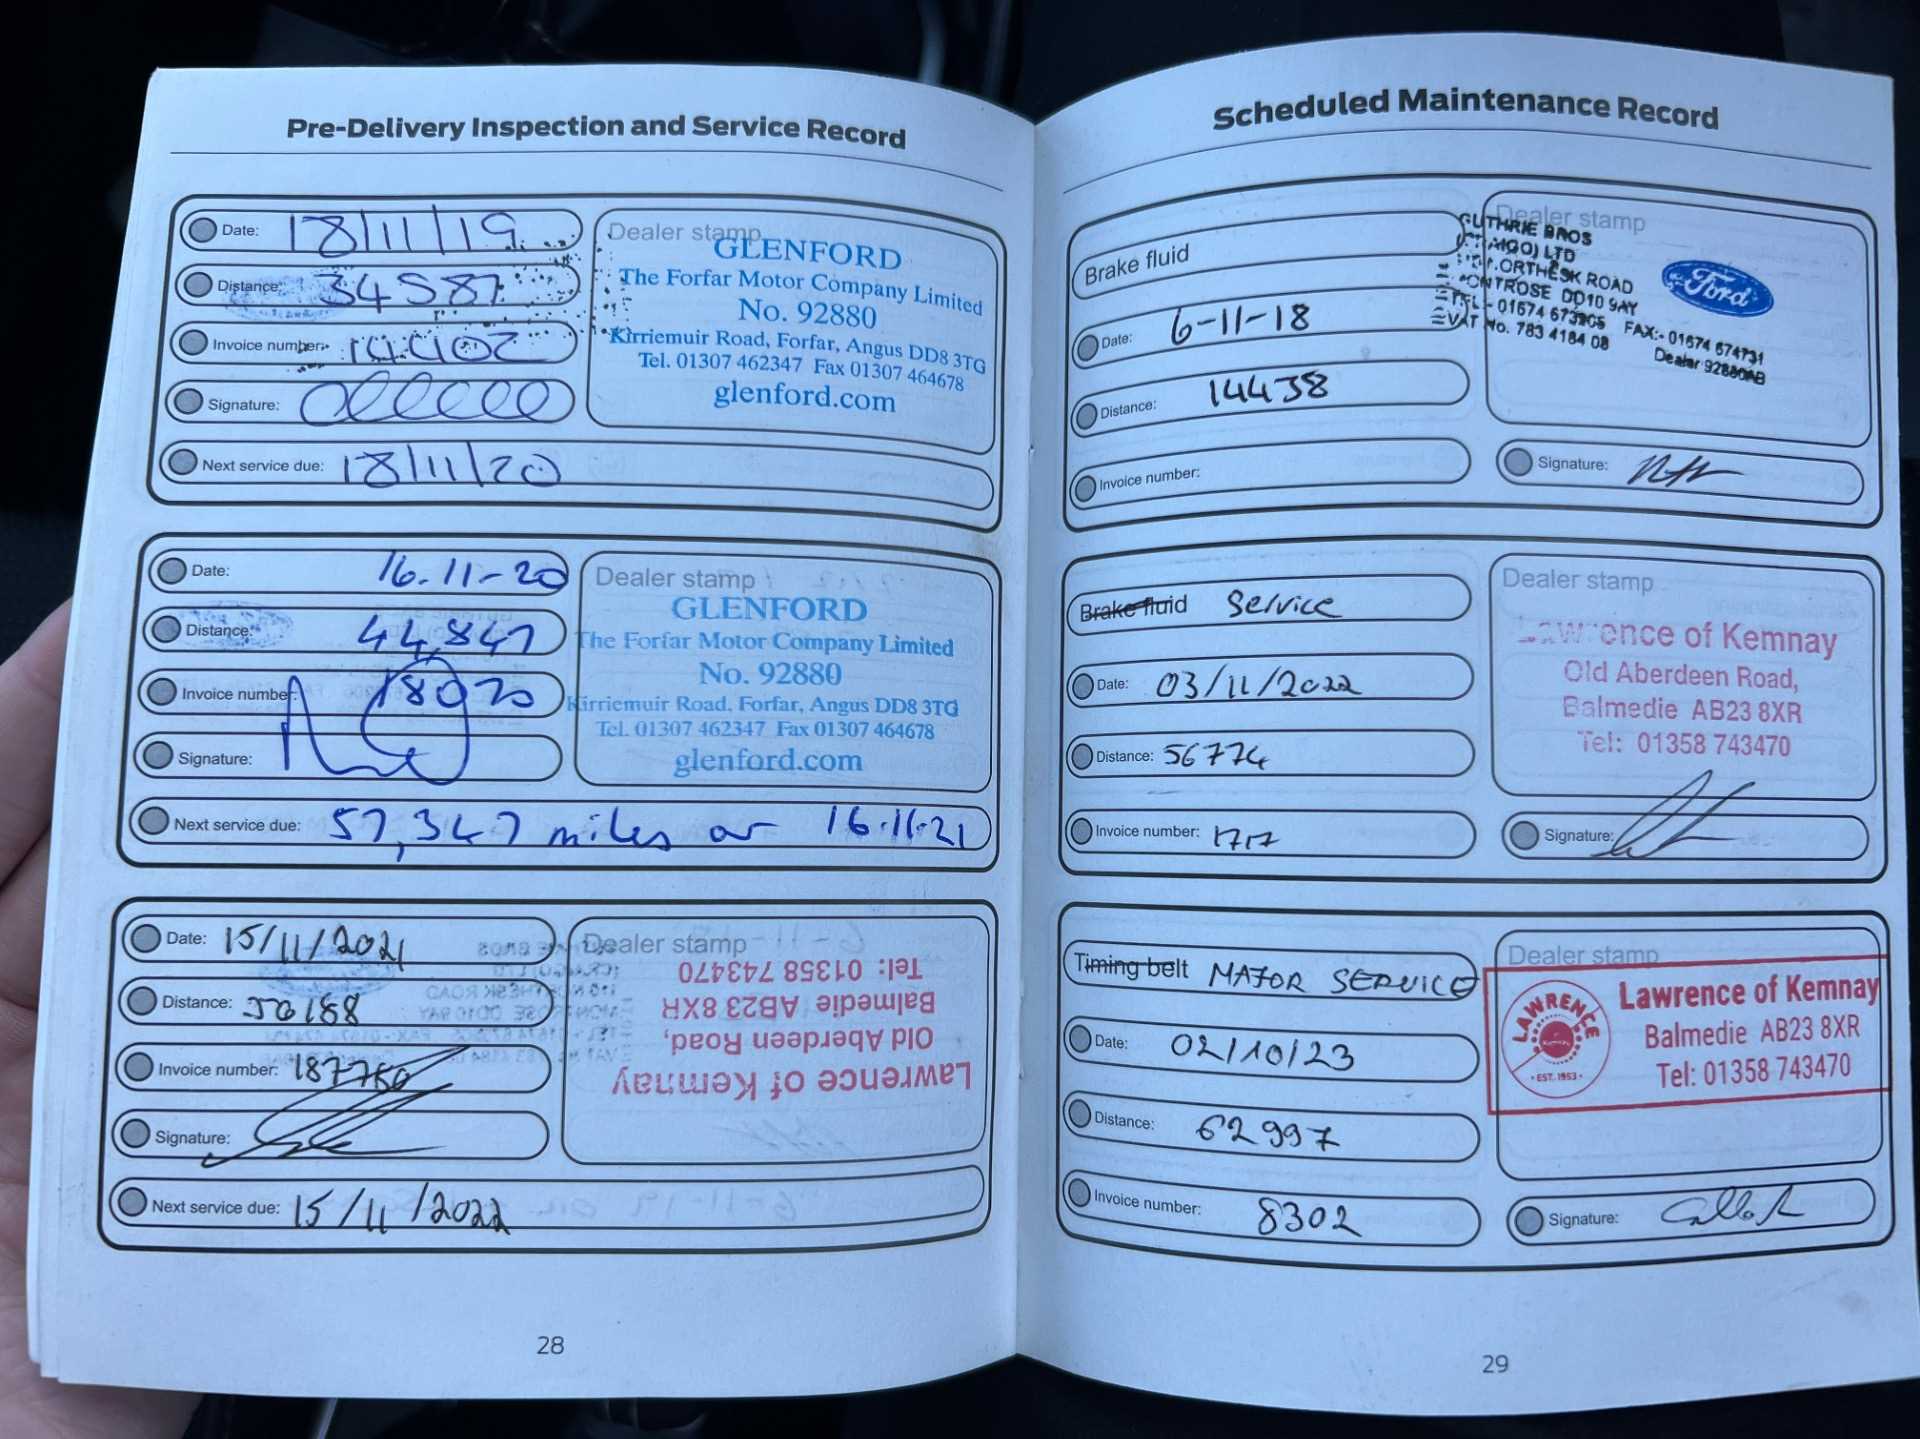 Pre-Delivery Inspection and Service Record
Date: 18/11/19
Distance: 34587
Invoice number:
Signature:
Next service due: 18/11/20
Dealer stamp
GLENFORD
The Forfar Motor Company Limited
No. 92880
Kirriemuir Road, Forfar, Angus DD8 3TG
Tel. 01307 462347 Fax 01307 464678
glenford.com
Date: 16.11-20
Distance: 44,847
Invoice number: 18070
Signature:
Next service due: 57,347 miles or 16.11.21
Dealer stamp
GLENFORD
The Forfar Motor Company Limited
No. 92880
Kirriemuir Road, Forfar, Angus DD8 3TG
Tel. 01307 462347 Fax 01307 464678
glenford.com
Date: 15/11/2021
Distance: 50188
Invoice number: 187750
Signature:
Next service due: 15/11/2022
Dealer stamp
Lawrence of Kemnay
Old Aberdeen Road,
Balmedie AB23 8XR
Tel: 01358 743470
28
Scheduled Maintenance Record
Brake fluid
Date: 6-11-18
Distance: 14438
Invoice number:
Dealer stamp
GUTHRIE BROS
(CRAIGO) LTD
NORTHESK ROAD
MONTROSE DD10 9AY
TEL:- 01674 673205 FAX:- 01674 674731
VAT No. 783 4184 08 Dealer 92880AB
Ford
Signature:
Brake fluid Service
Date: 03/11/2022
Distance: 56774
Invoice number: 1717
Dealer stamp
Lawrence of Kemnay
Old Aberdeen Road,
Balmedie AB23 8XR
Tel: 01358 743470
Signature:
Timing belt MAJOR SERVICE
Date: 02/10/23
Distance: 62997
Invoice number: 8302
Dealer stamp
LAWRENCE
EST. 1953
Lawrence of Kemnay
Balmedie AB23 8XR
Tel: 01358 743470
Signature:
29